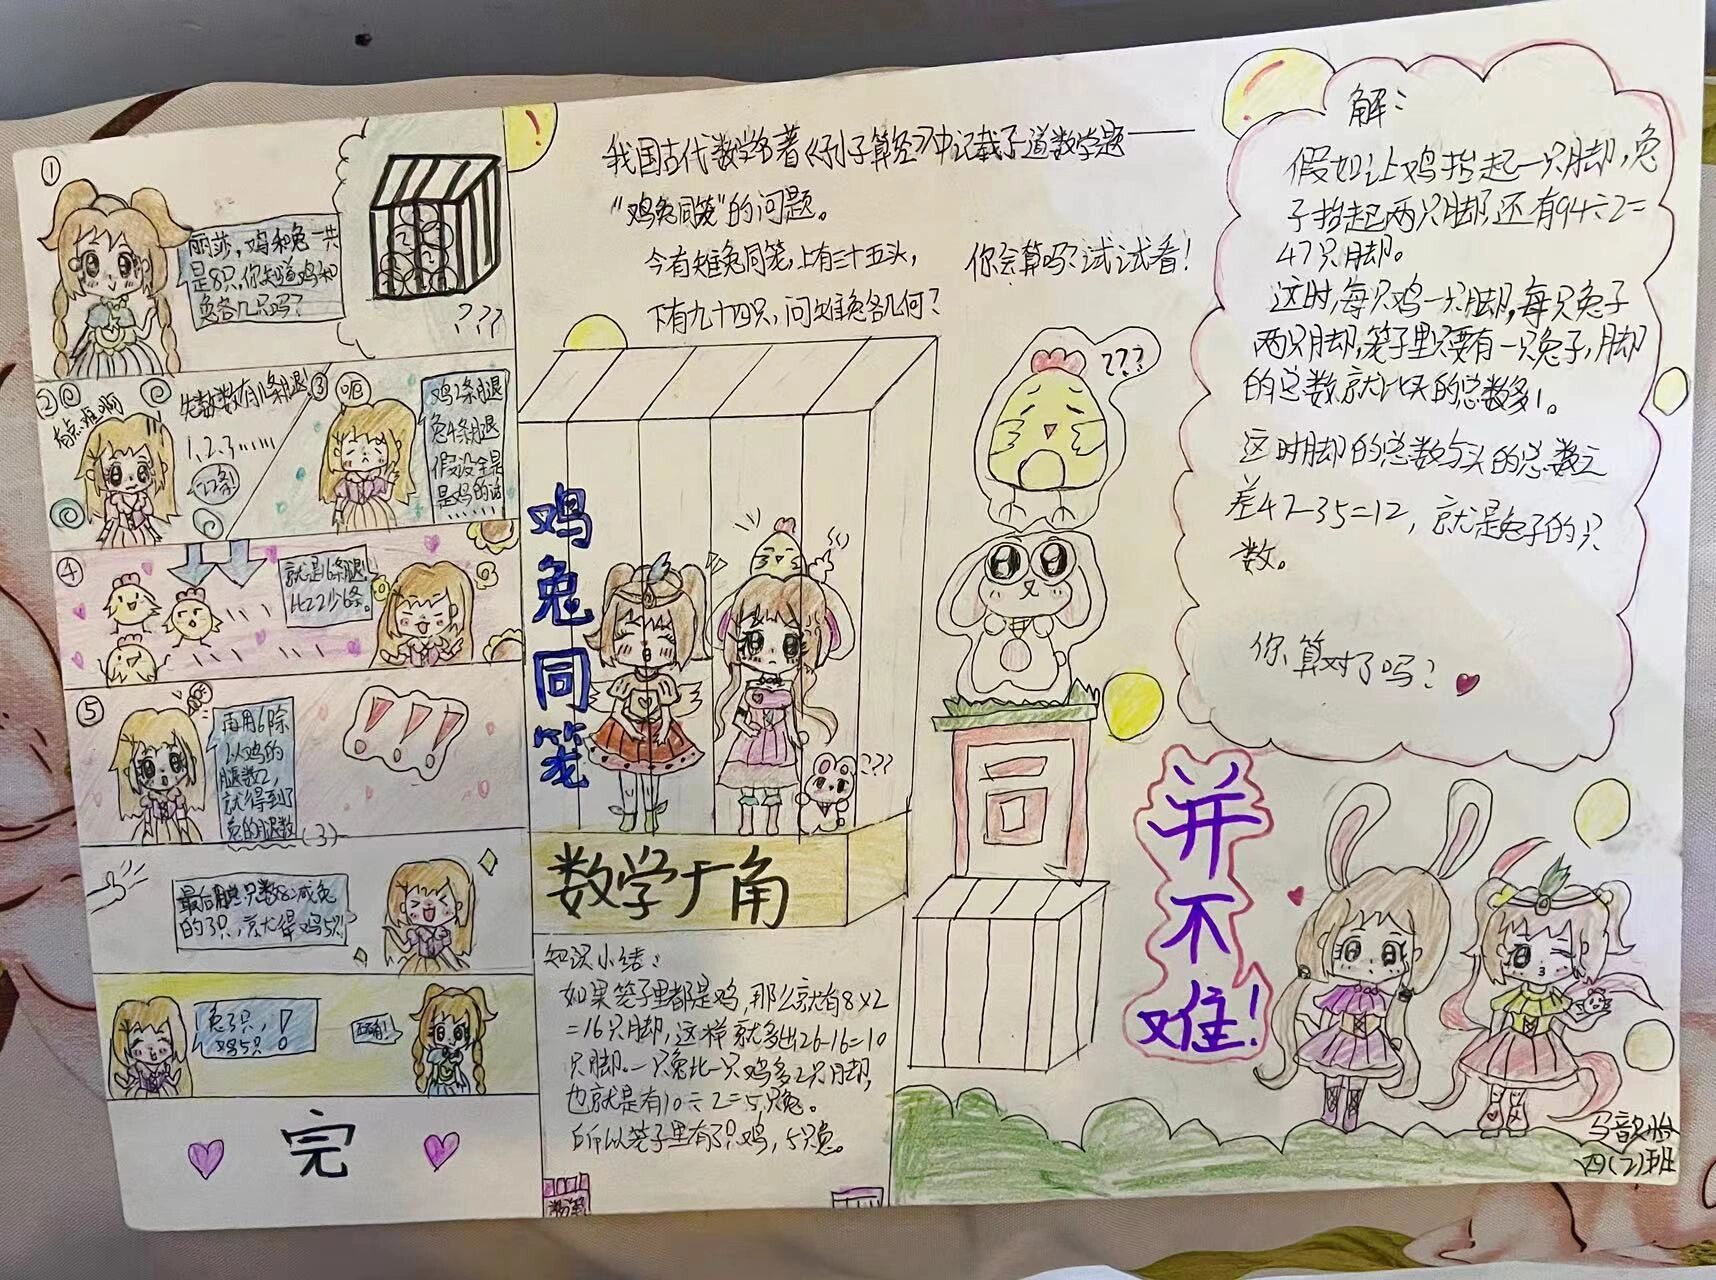 ①
丽莎，鸡和兔一共
是8只，你知道鸡和
兔各几只吗？
???
②
有点难啊
先数数有几条腿
1、2、3……
③
呃
鸡2条腿
兔4条腿
假设全是
是鸡的话
……
④
就是16条腿，
比22少6条。
⑤
再用6除
以鸡的
腿数2，
就得到了
兔的腿数
(3)
的3只，就得鸡5只
兔3只，
鸡5只！
完
我国古代数学名著《孙子算经》中记载了一道数学题——
“鸡兔同笼”的问题。
今有雉兔同笼，上有三十五头，
下有九十四只，问雉兔各几何？
你会算吗？试试看！
鸡兔同笼
???
???
数学广角
知识小结：
如果笼子里都是鸡，那么就有8×2
=16只脚，这样就多出26-16=10
只脚。一只兔比一只鸡多2只脚，
也就是有10÷2=5只兔。
所以笼子里有3只鸡，5只兔。
解：
假如让鸡抬起一只脚，兔
子抬起两只脚，还有94÷2=
47只脚。
这时，每只鸡一只脚，每只兔子
两只脚，笼子里只要有一只兔子，脚
的总数就比头的总数多1。
这时脚的总数与头的总数之
差47-35=12，就是兔子的只
数。
你算对了吗？
并不难！
四(2)班